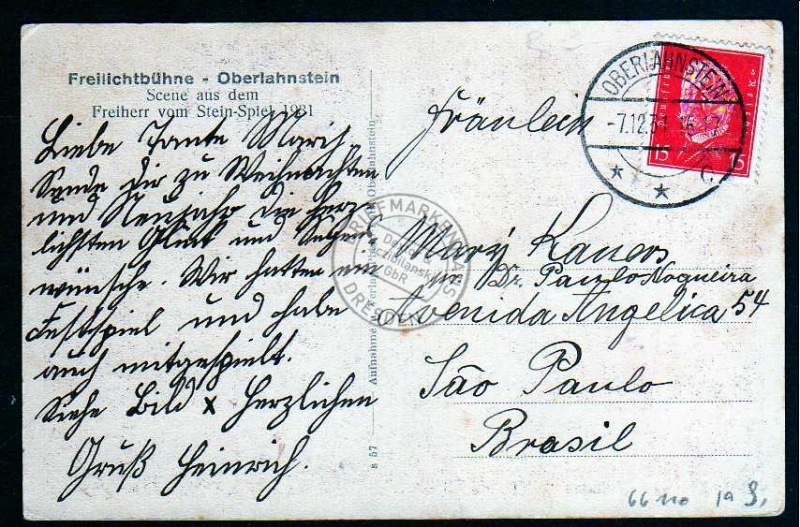 Freilichtbühne - Oberlahnstein
Scene aus dem
Freiherr vom Stein-Spiel 1931
Liebe Tante Mary,
Sende Dir zu Weihnachten
und Neujahr die herz-
lichsten Glück und Segens
wünsche. Wir hatten ein
Festspiel und habe
auch mitgespielt.
Siehe Bild x Herzlichen
Gruß Heinrich.
OBERLAHNSTEIN
-7.12.31
15
15
Fräulein
Mary
Dr. Paulo Nogueira
Avenida Angelica 54
São Paulo
Brasil
BRIEFMARKENHAUS
GbR
DRESDEN
Oberlahnstein
Aufnahme
s 57
66110